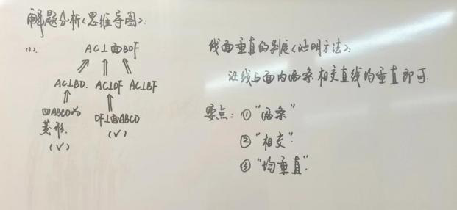 解题分析（思维导图）：
(1). AC⊥面BDF
AC⊥BD. AC⊥DF AC⊥BF
四ABCD为 DF⊥面ABCD
菱形. (√)
(√)
线面垂直的判定（证明方法）：
证线与面内两条相交直线均垂直即可
要点：①“两条”
②“相交”
③“均垂直”